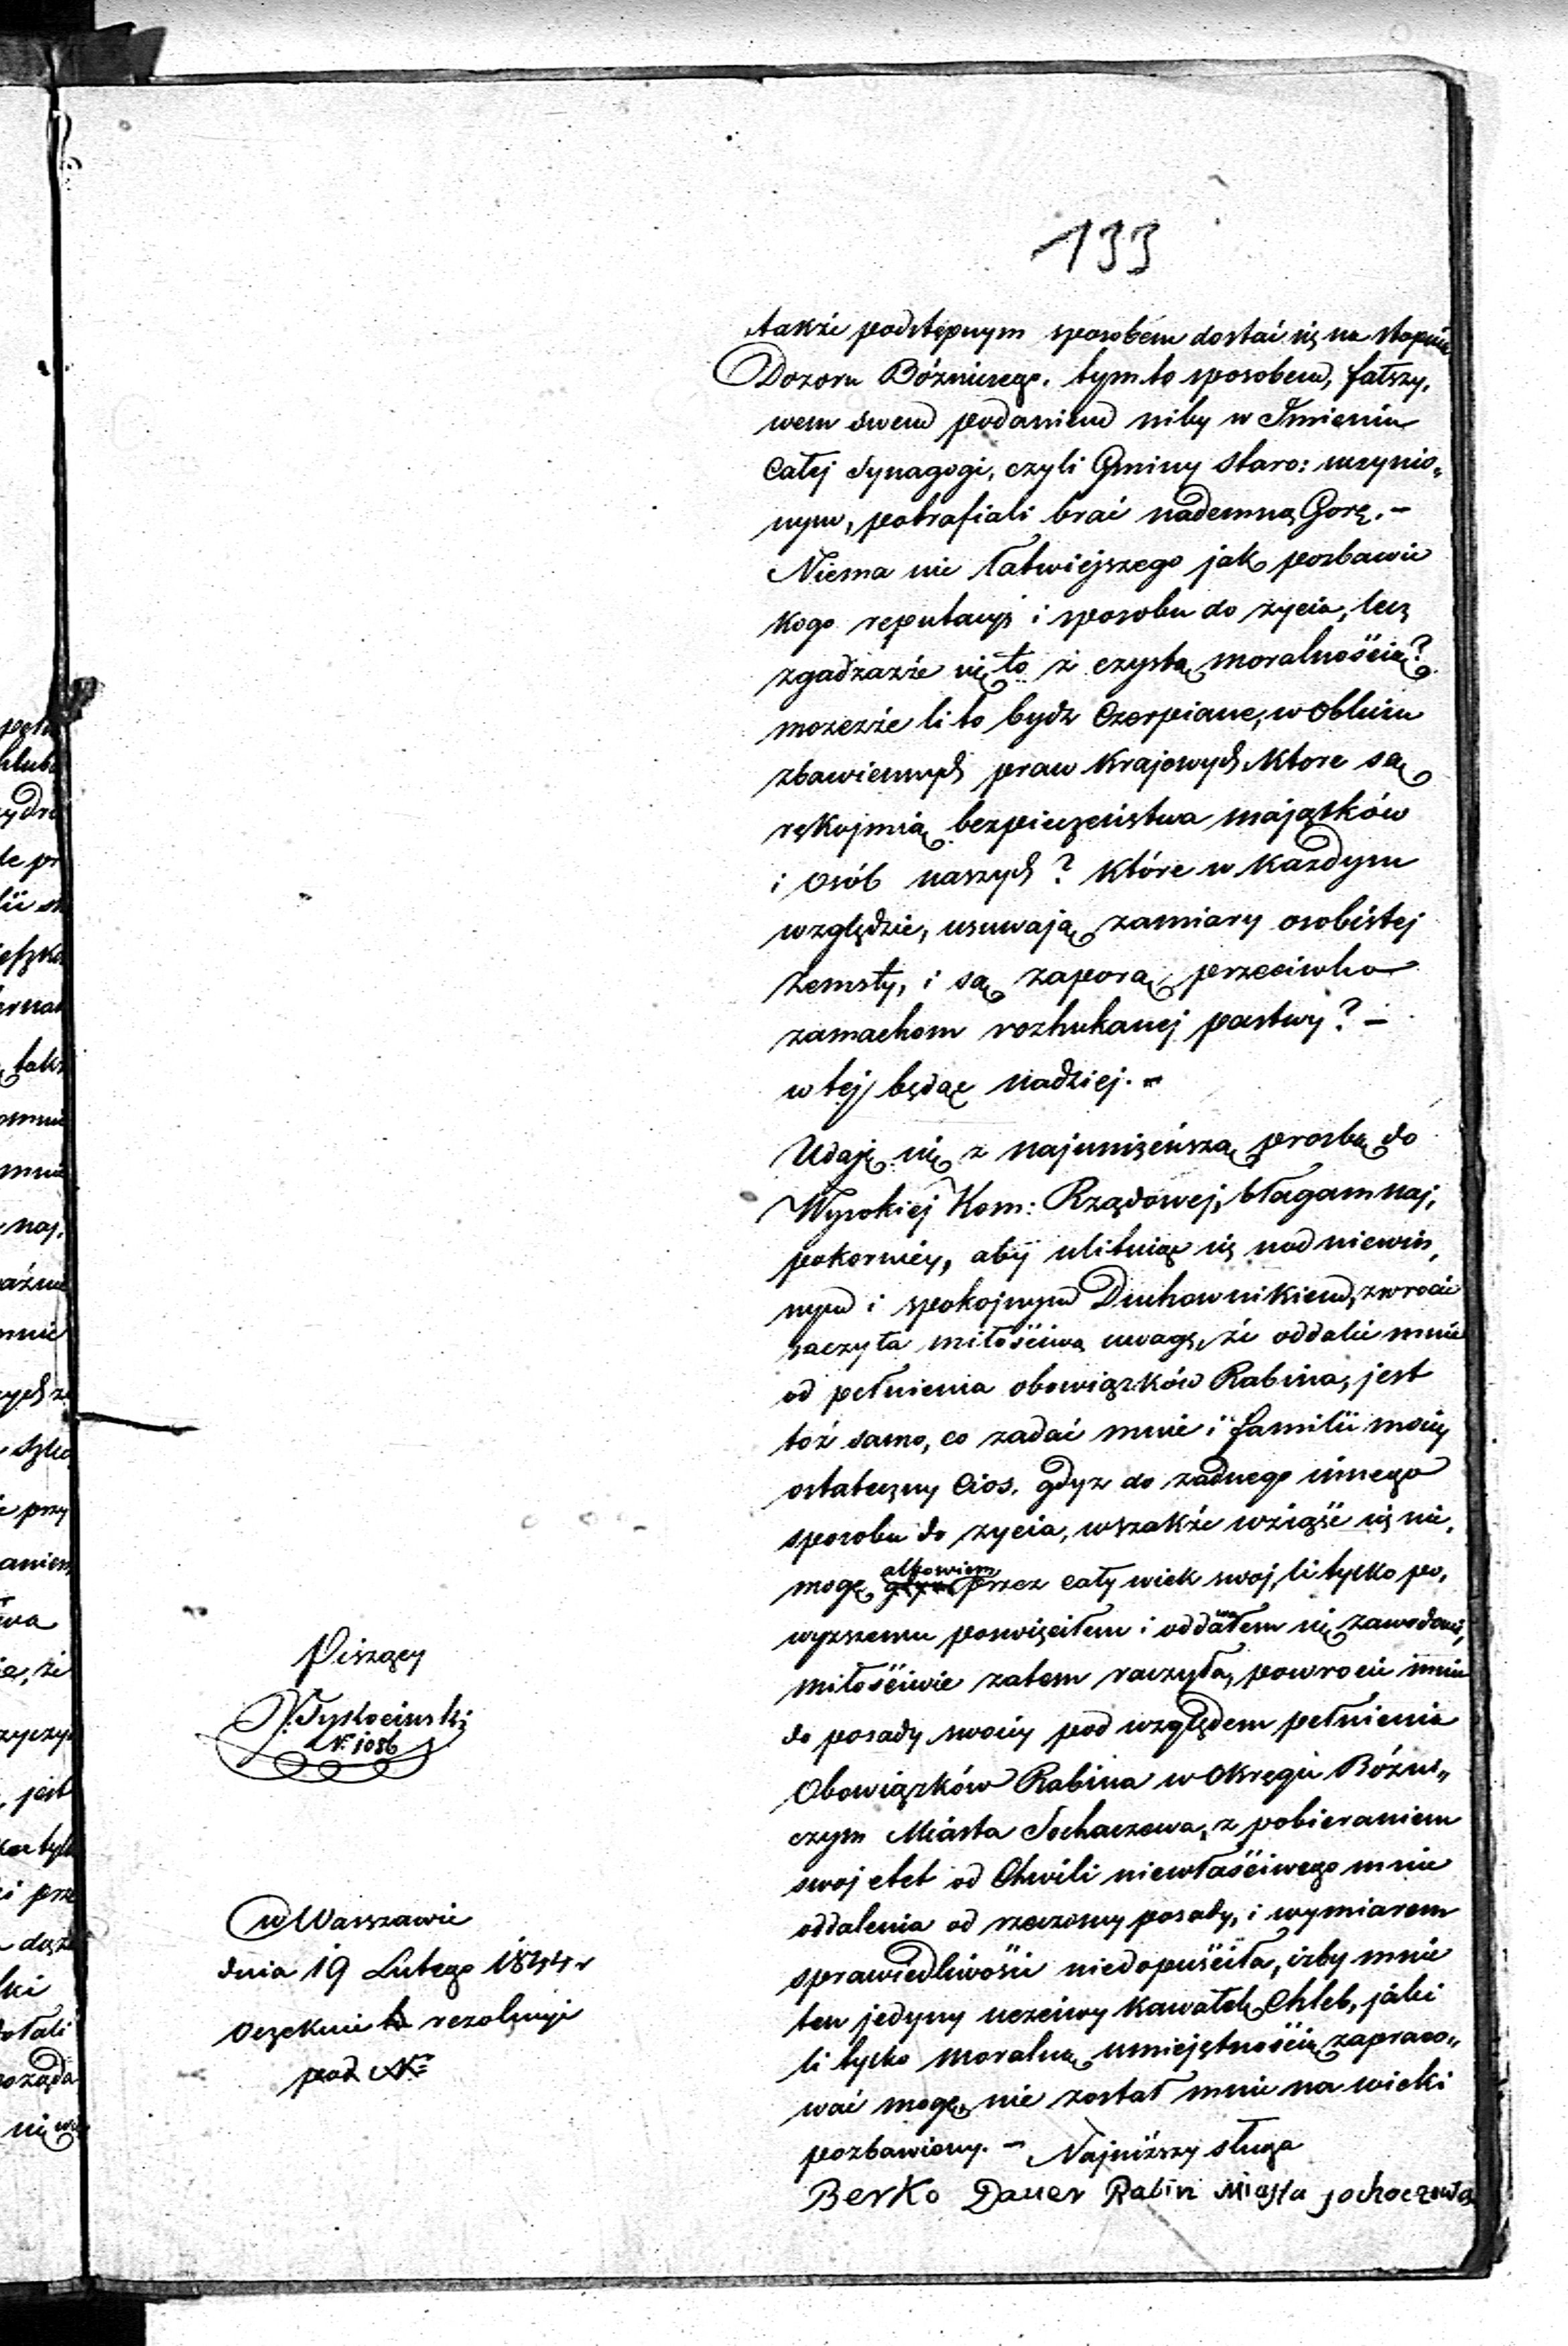 133
także podstępnym sposobem dostać się na stopnie
Dozoru Bóżniczego. tym to sposobem, fałszy,
wem swem podaniem niby w Imieniu
Całej Synagogi, czyli Gminy Staro: uczynio„
nym, potrafiali brać nademną Gorę. –
Niema nic łatwiejszego jak pozbawić
kogo reputacyi i sposobu do zycia, lecz
zgadzaźe się to z czystą moralnością?
możeźe li to bydz Czerpiane, w obliczu
zbawiennych praw Krajowych, Ktore są
rękojmią bezpieczeństwa majątków
i Osób naszych? które w Każdym
względzie, usuwają zamiary osobistej
zemsty, i są zaporą przeciwko
zamachom rozhukanej pastwy? –
w tej będąc nadziej. –
Udaję się z najuniżeńszą prosbą do
Wysokiej Kom: Rządowej, błagam naj,
pokorniéy, aby ulitując się nad niewin,
nym i spokojnym Duchownikiem, zwrocić
raczyła miłościwą uwagę, źe oddalić mnie
od pełnienia obowiązków Rabina, jest
toż samo, co zadać mnie i familii moiéy
ostateczny Cios. gdyz do zadnego innego
sposobu do zycia, wszakźe wziąść się nie,
mogę albowiem przez cały wiek swoj, li tylko po,
wyzszemu poswięciłem i oddawałem się zawodowi,
miłościwie zatem raczyła, powrocić mnie
do posady swoiéy pod względem pełnienia
Obowiązków Rabina w Okręgu Bóżni„
czym Miasta Sochaczewa, z pobieraniem
swoj etet od Chwili niewłaściwego mnie
oddalenia od rzeczoney posady, i wymiarem
sprawiedliwości niedopuściła, iżby mnie
ten jedyny uczciwy kawałek Chleb, jaki
li tylko moralną umiejętnością zapraco„
wać mogę, nie został mnie na wieki
pozbawiony. – Najniższy sługa
Berko Dauer Rabin Miasta sochaczewa
Piszący
Tykociński
N. 1086
w Warszawie
dnia 19 Lutego 1844 r
Oczekuie rezolucyi
pod No